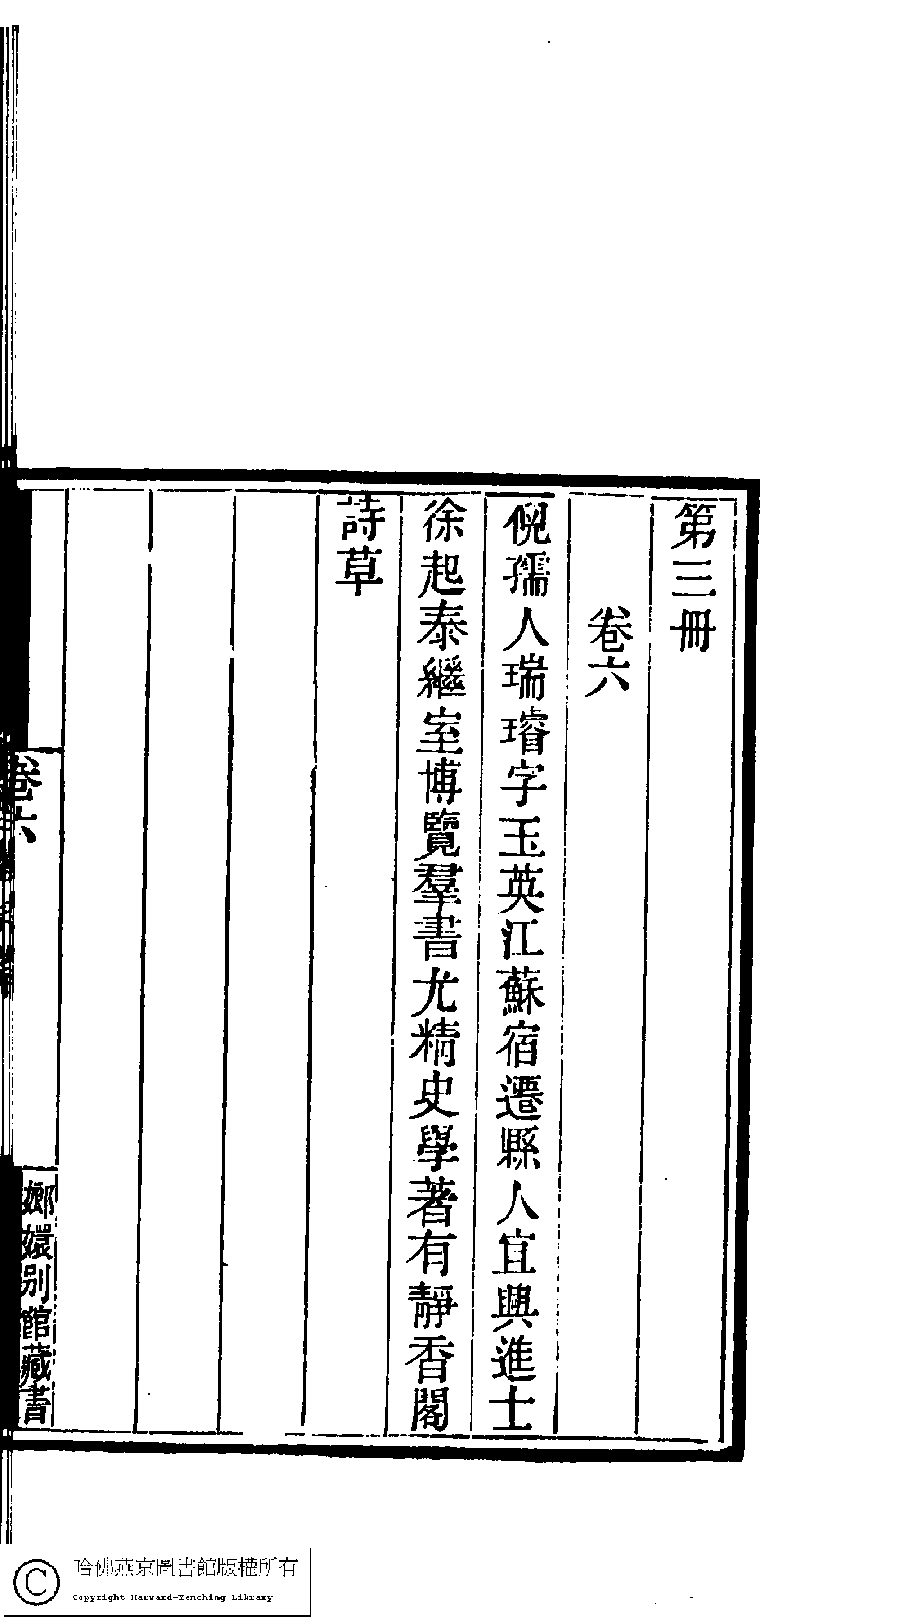 第三冊
卷六
倪孺人瑞璿字玉英江蘇宿遷縣人宜興進士
徐起泰繼室博覽羣書尤精史學著有靜香閣
詩草
卷六
嫏嬛別館藏書
哈佛燕京圖書館版權所有
Copyright Harvard-Yenching Library